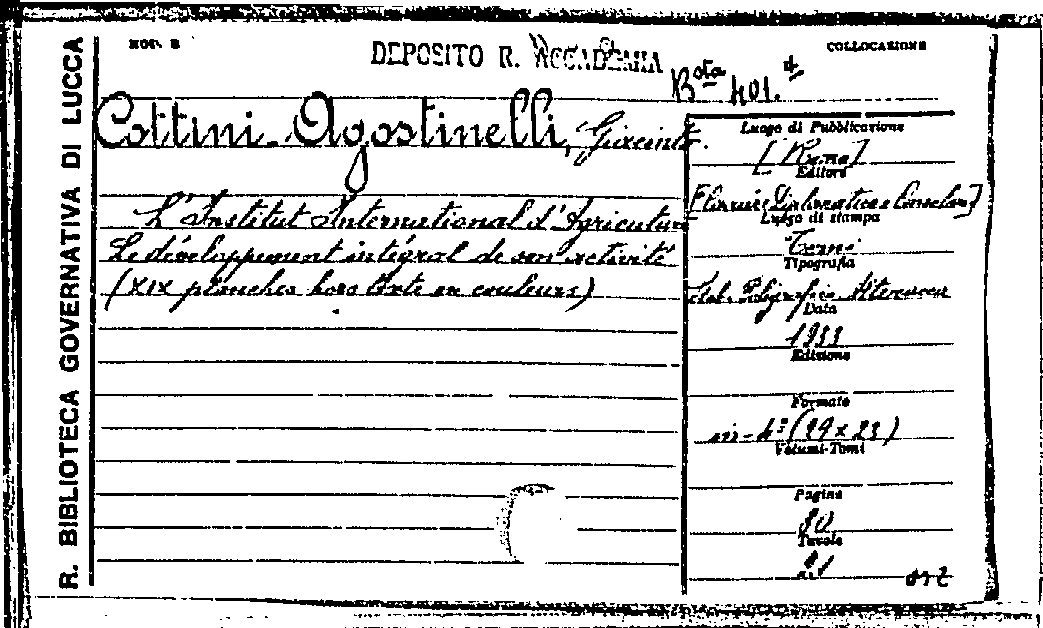 R. BIBLIOTECA GOVERNATIVA DI LUCCA
MOD. B
DEPOSITO R. ACCADEMIA
COLLOCAZIONE
Bsta 401.
Cottini-Agostinelli,
L'Institut International d'Agriculture
Le développement intégral de son activité
(XIX planches hors texte en couleurs)
Luogo di Pubblicazione
[Roma]
Editore
Luogo di stampa
Terni
Tipografia
Stab. Poligrafico Alterocca
Data
1933
Edizione
Formato
in-4° (29 x 23)
Volumi-Tomi
Pagine
80
Tavole
21